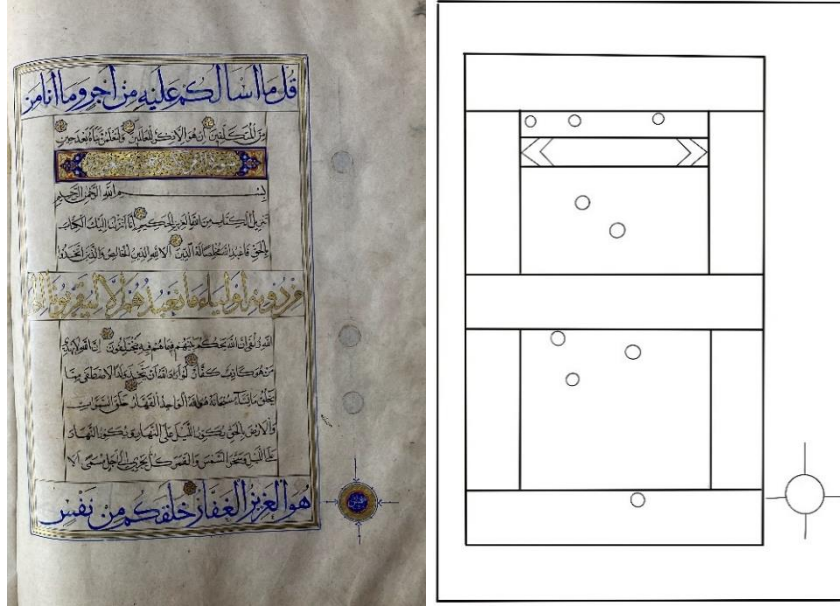 قل ما اسألكم عليه من اجر وما انا من
من المتكلفين ان هو الا ذكر للعالمين ولتعلمن نبأه بعد حين
بسم الله الرحمن الرحيم
تنزيل الكتاب من الله العزيز الحكيم انا انزلنا اليك الكتاب
بالحق فاعبد الله مخلصا له الدين الا لله الدين الخالص والذين اتخذوا
من دونه اولياء ما نعبدهم الا ليقربونا الى
الله زلفى ان الله يحكم بينهم فيما هم فيه يختلفون ان الله لا يهدي
من هو كاذب كفار لو اراد الله ان يتخذ ولدا لاصطفى مما
يخلق ما يشاء سبحانه هو الله الواحد القهار خلق السموات
والارض بالحق يكور الليل على النهار ويكور النهار
على الليل وسخر الشمس والقمر كل يجري لاجل مسمى الا
هو العزيز الغفار خلقكم من نفس